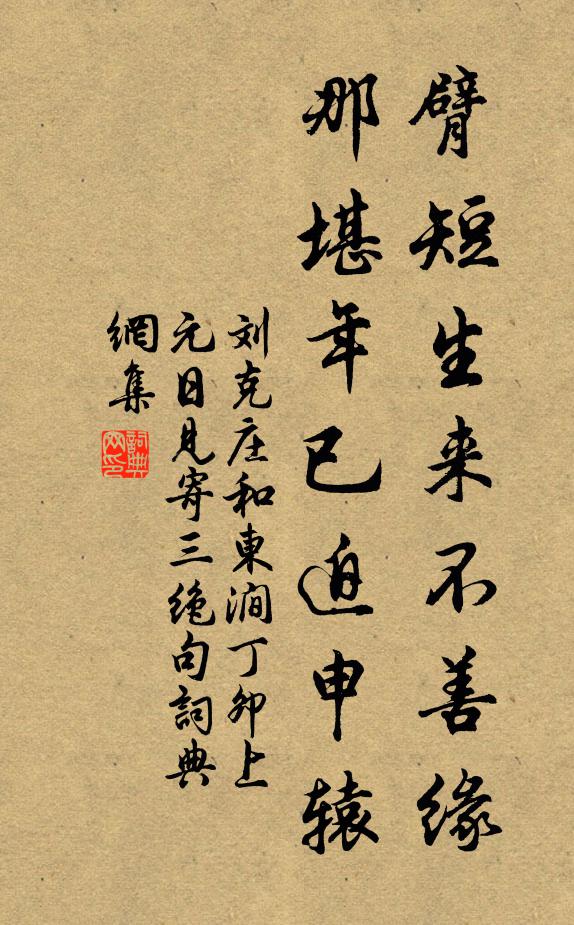 臂短生来不善缘
那堪年已迫申辕
刘克庄和東澗丁卯上
元日見寄三绝句詞典
網集
詞典網印